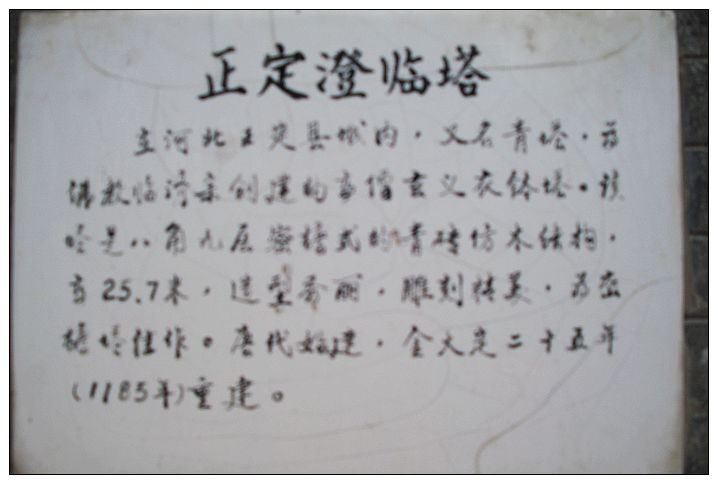 正定澄临塔
在河北正定县城内，又名青塔，为
佛教临济宗创建的高僧玄义衣钵塔。该
塔是八角九层密檐式的青砖仿木结构，
高25.7米，造型秀丽，雕刻精美，为密
檐塔佳作。唐代始建，金大定二十五年
(1185年)重建。